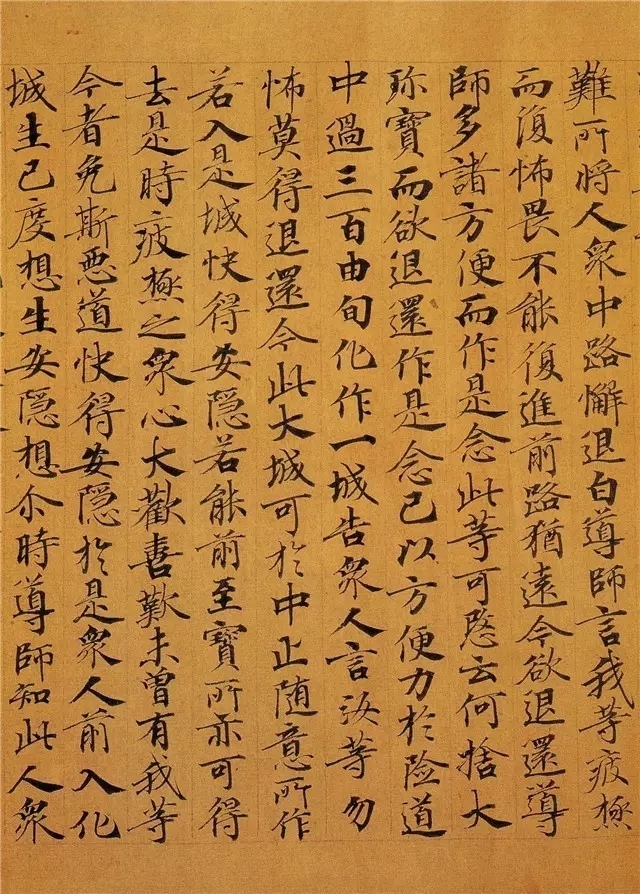 難所將人衆中路懈退白導師言我等疲極
而復怖畏不能復進前路猶遠今欲退還導
師多諸方便而作是念此等可愍云何捨大
珎寶而欲退還作是念已以方便力於險道
中過三百由旬化作一城告衆人言汝等勿
怖莫得退還今此大城可於中止随意所作
若入是城快得安隠若能前至寶所亦可得
去是時疲極之衆心大歡喜歎未曾有我等
今者免斯惡道快得安隠於是衆人前入化
城生已度想生安隠想尒時導師知此人衆